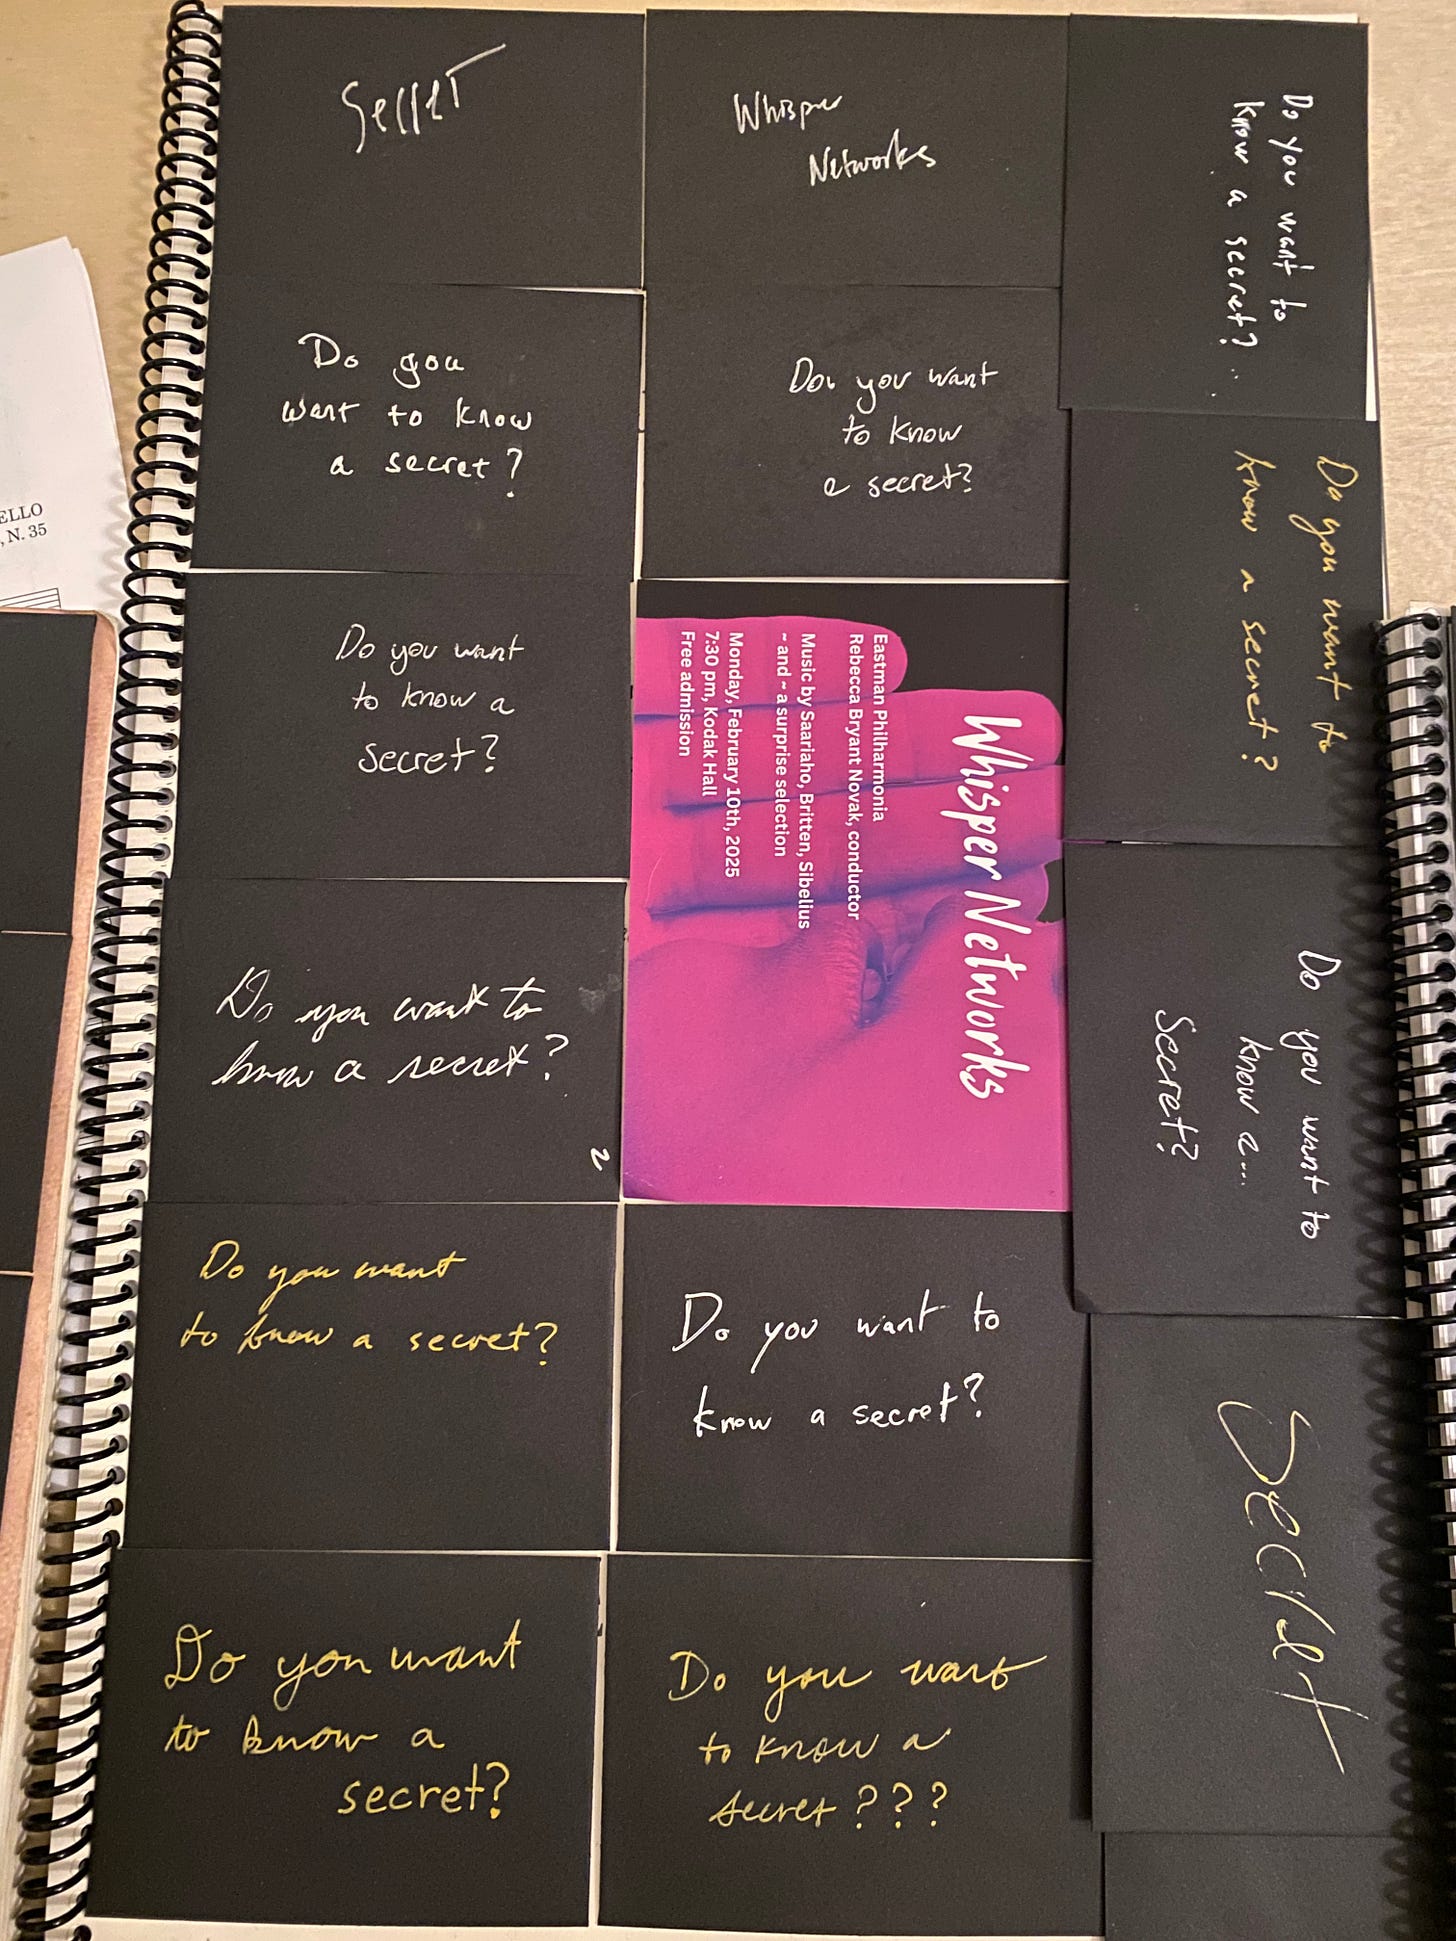 Secret
Whisper
Networks
Do you want to
know a secret?
Do you
want to know
a secret?
Do you want
to know
a secret?
Do you want to
know a secret?
ELLO
, N. 35
Do you want
to know a
secret?
Whisper Networks
Eastman Philharmonia
Rebecca Bryant Novak, conductor
Music by Saariaho, Britten, Sibelius
~ and ~ a surprise selection
Monday, February 10th, 2025
7:30 pm, Kodak Hall
Free admission
Do you want to
know a...
Secret?
Do you want to
know a secret?
2
Do you want
to know a secret?
Do you want to
know a secret?
Secret
Do you want
to know a
secret?
Do you want
to know a
secret???